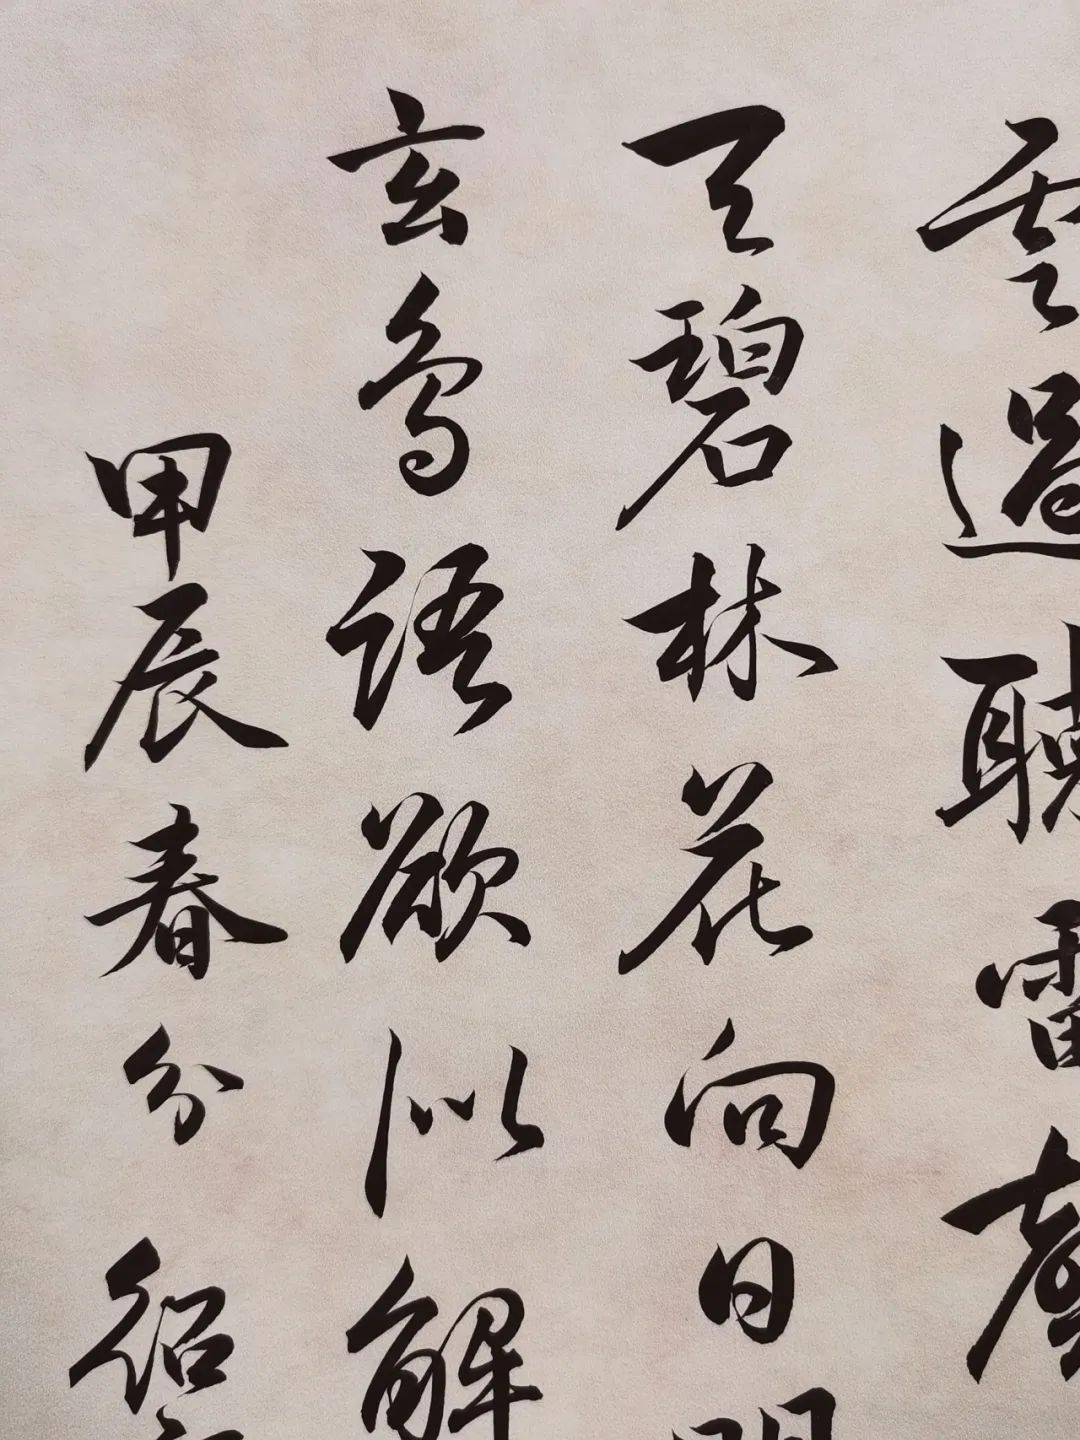 雲過聽雷聲
天碧林花向日明
玄鳥語欲似解
甲辰春分紹